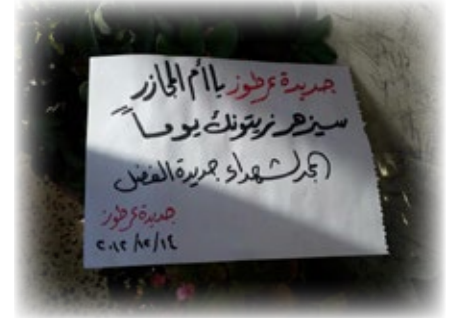 جديدة عرطوز يا أم المجازر
سيزهر زيتونك يوماً
المجد لشهداء جديدة الفضل
جديدة عرطوز
٢٠١٢/١٢/١٤